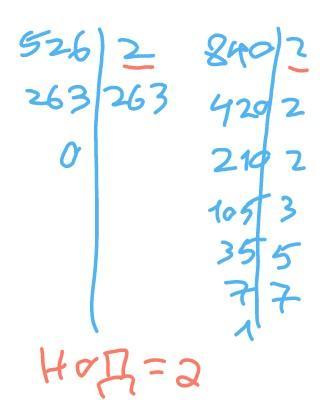 526 2
263 263
0
840 2
420 2
210 2
105 3
35 5
7 7
1
НОД=2